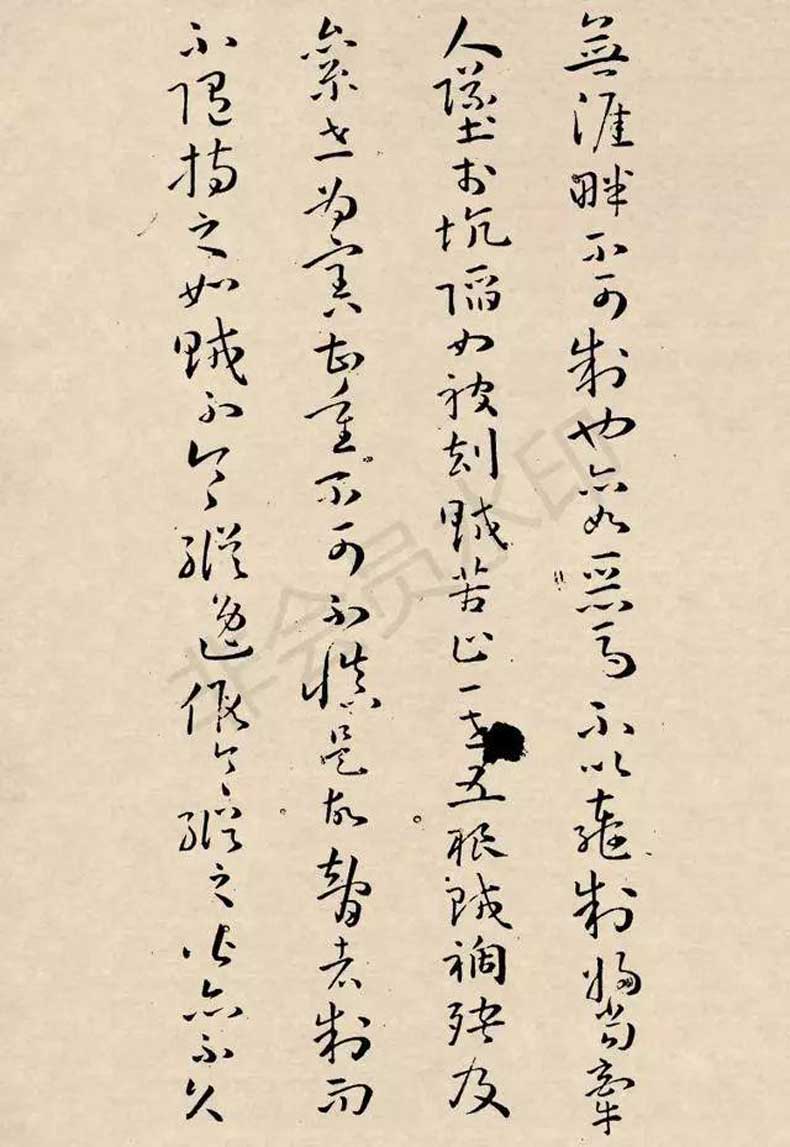 無涯畔不可制也亦如惡馬不以轡制將當牽
人墜於坑陷如被劫賊苦止一世五根賊禍殃及
累世為害甚重不可不慎是故智者制而
不隨持之如賊不令縱逸假令縱之皆亦不久
非会员水印